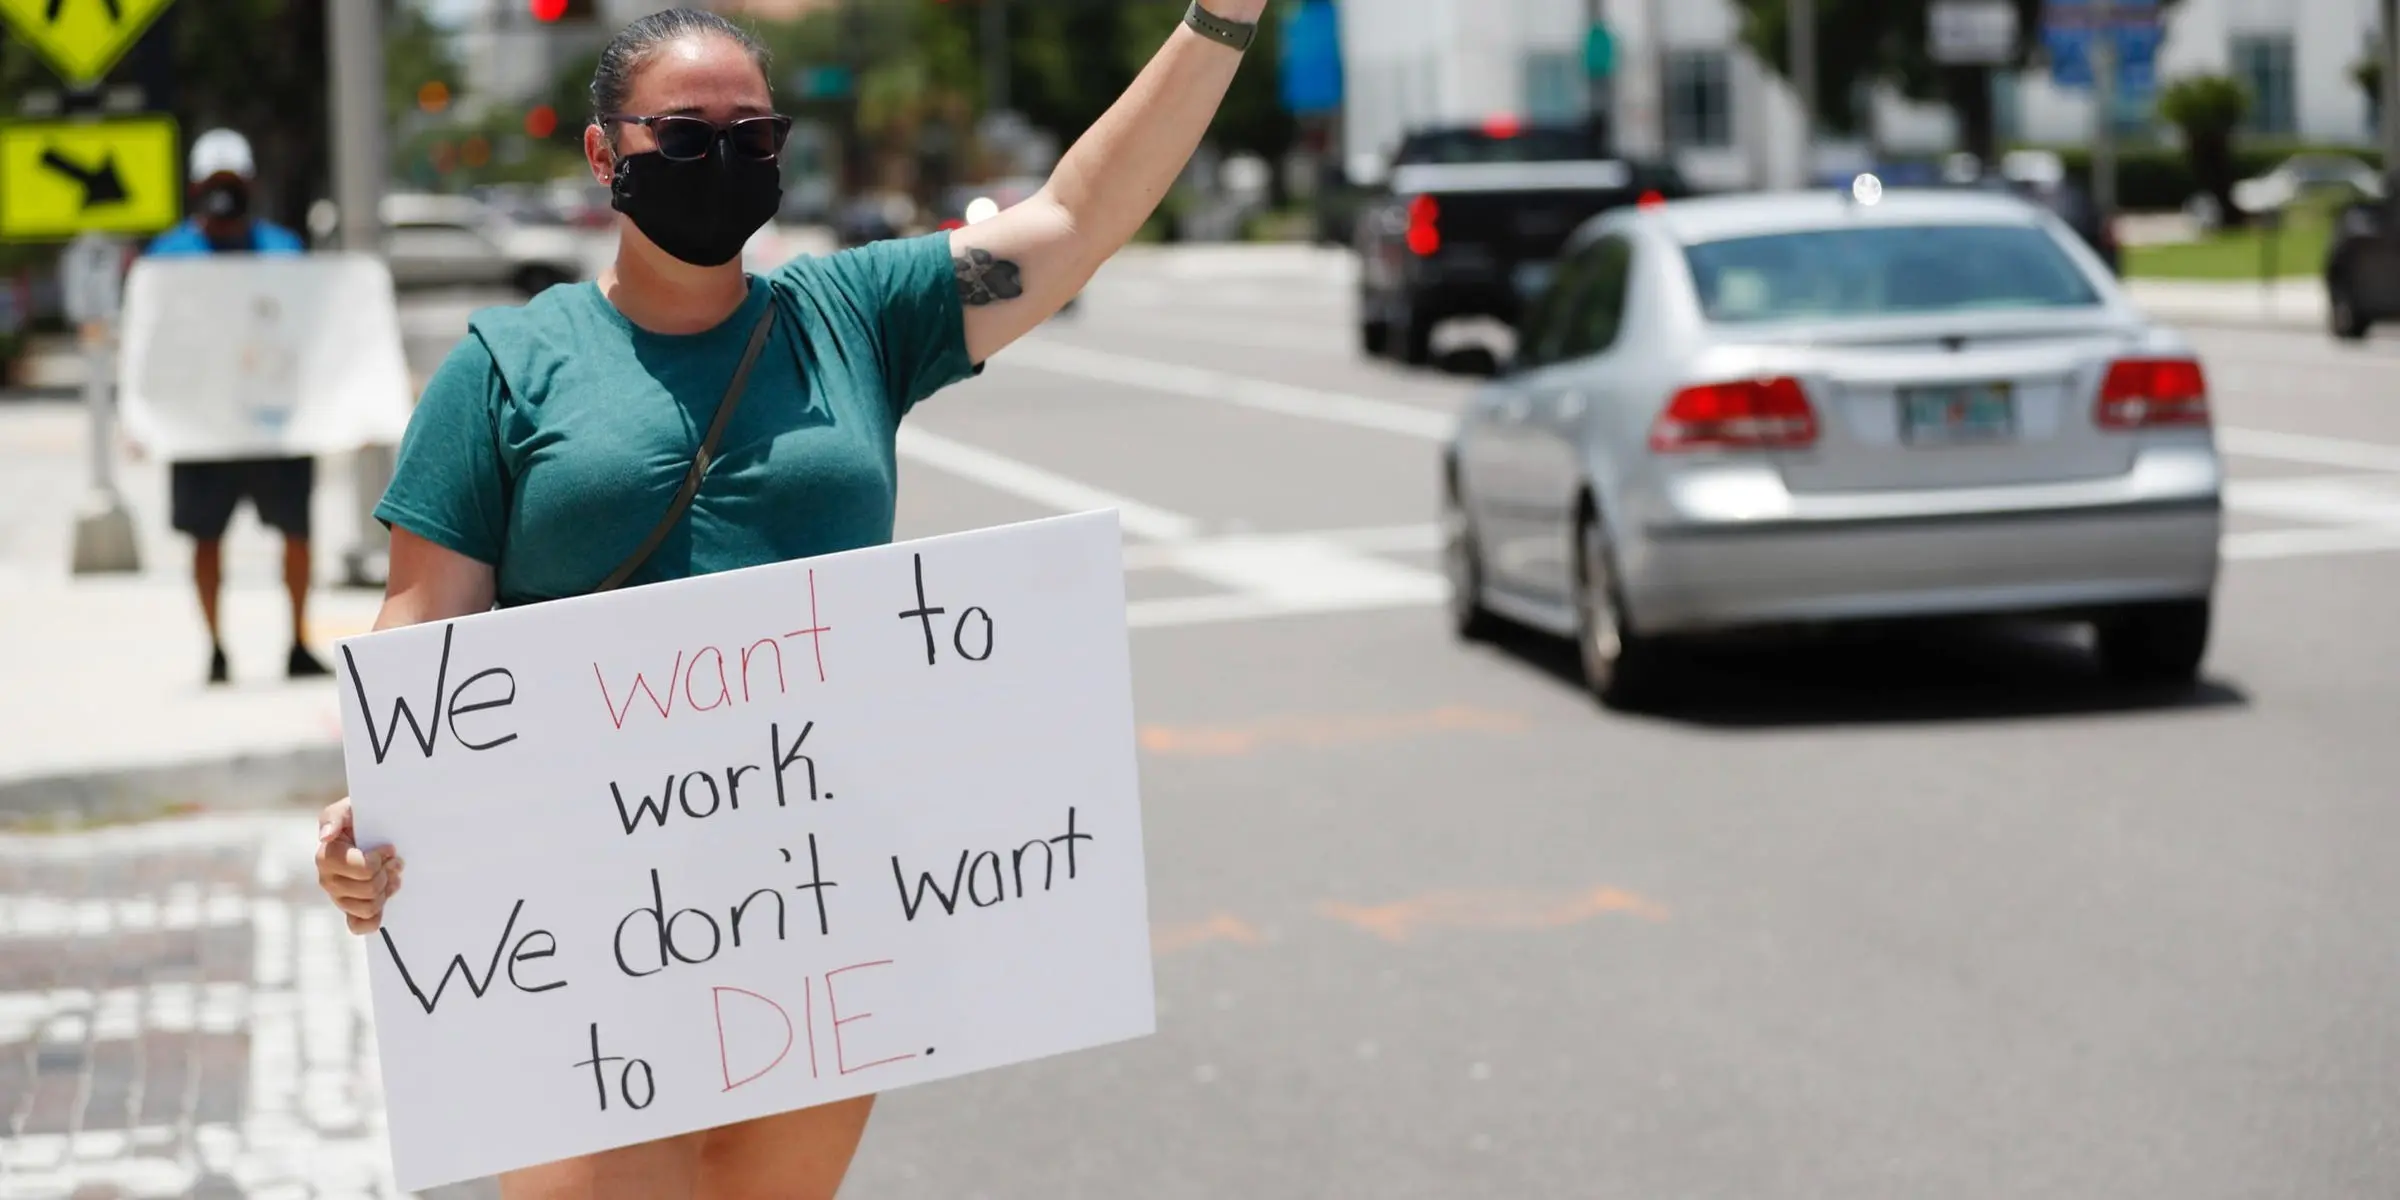 We want to
work.
We don't want
to DIE.